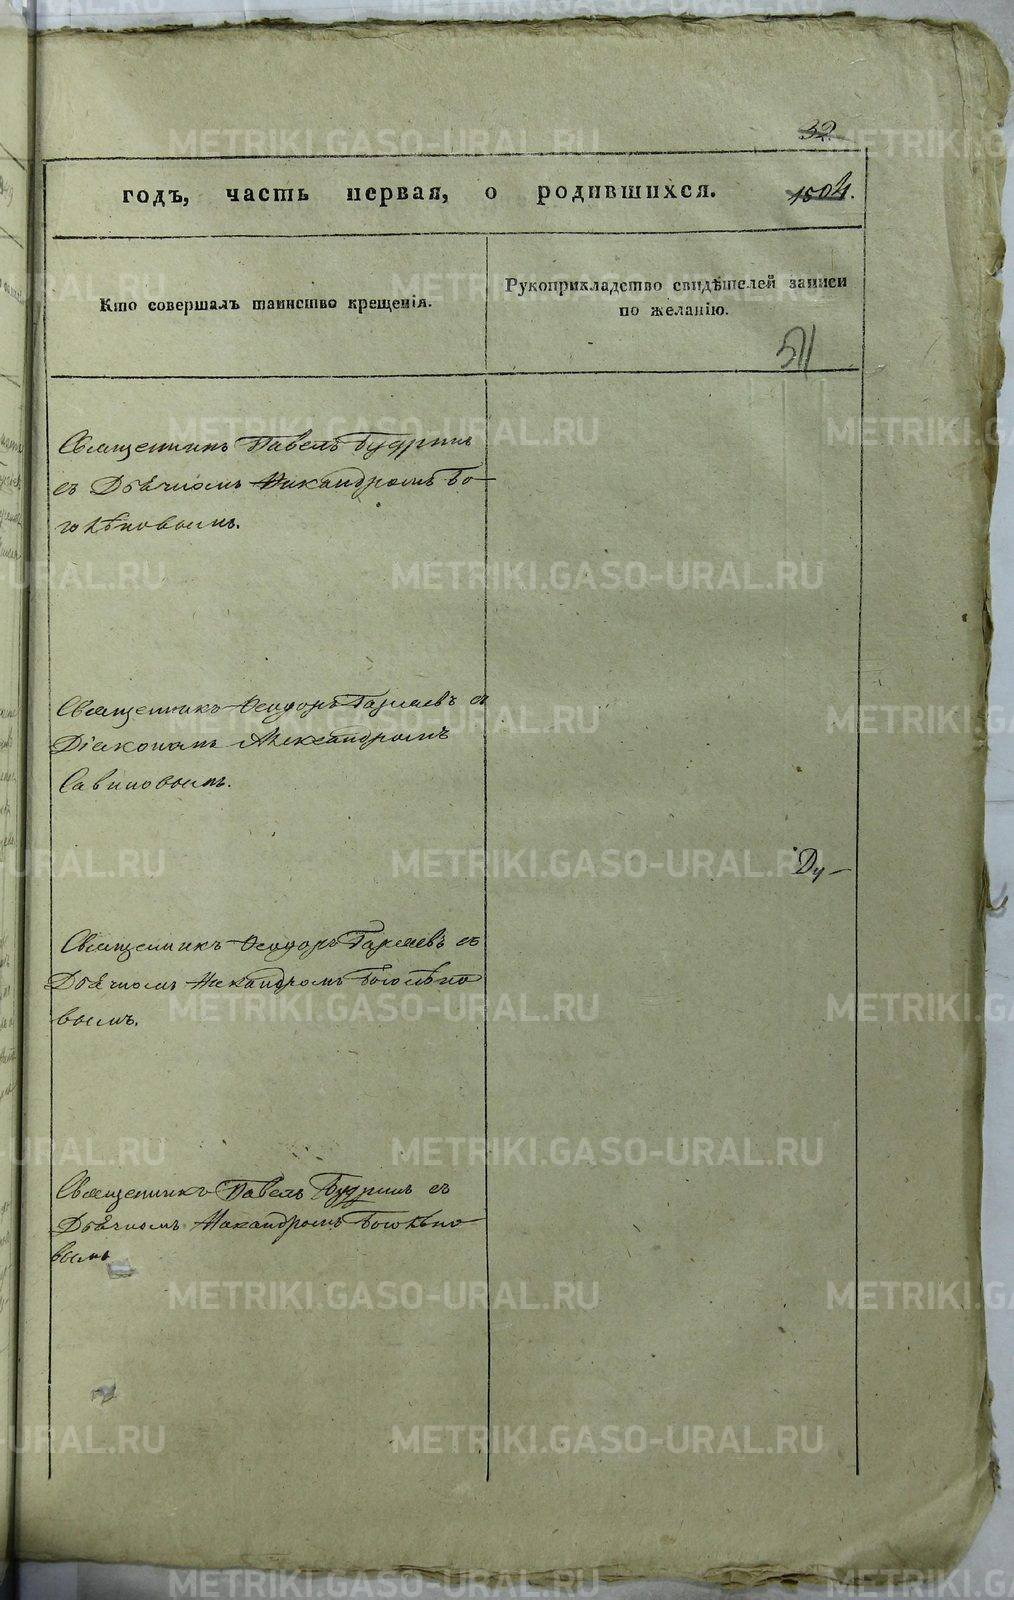 32.
годъ, часть первая, о родившихся. 1504.
Кто совершалъ таинство крещенія.
Рукоприкладство свидѣтелей записи
по желанію.
511
Священникъ Павелъ Будринъ
съ Дьячкомъ Никандромъ Бо-
голѣповымъ.
Священникъ Ѳеодоръ съ
Діакономъ Александромъ
Савиновымъ.
Ду-
Священникъ Ѳеодоръ съ
Дьячкомъ Никандромъ Боголѣпо
вымъ.
Священникъ Павелъ Будринъ съ
Дьячкомъ Никандромъ Боголѣпо
вымъ
METRIKI.GASO-URAL.RU